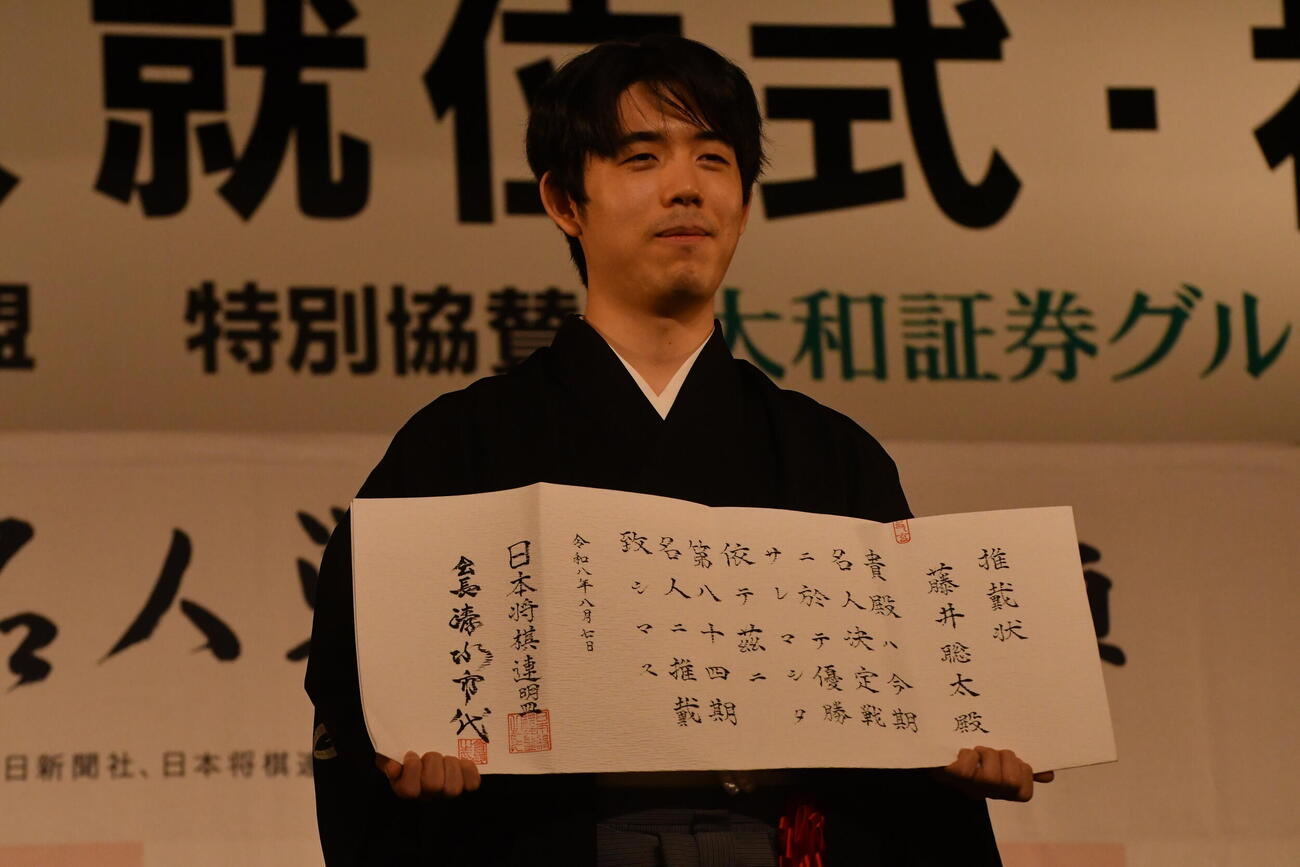 就位式・
盟 特別協賛 大和証券グル
名人
日新聞社、日本将棋連
推戴状
藤井聡太殿
貴殿ハ今期
名人決定戦
ニ於テ優勝
サレマシタ
依テ茲ニ
第八十四期
名人ニ推戴
致シマス
令和八年八月七日
日本将棋連盟
会長 清水市代